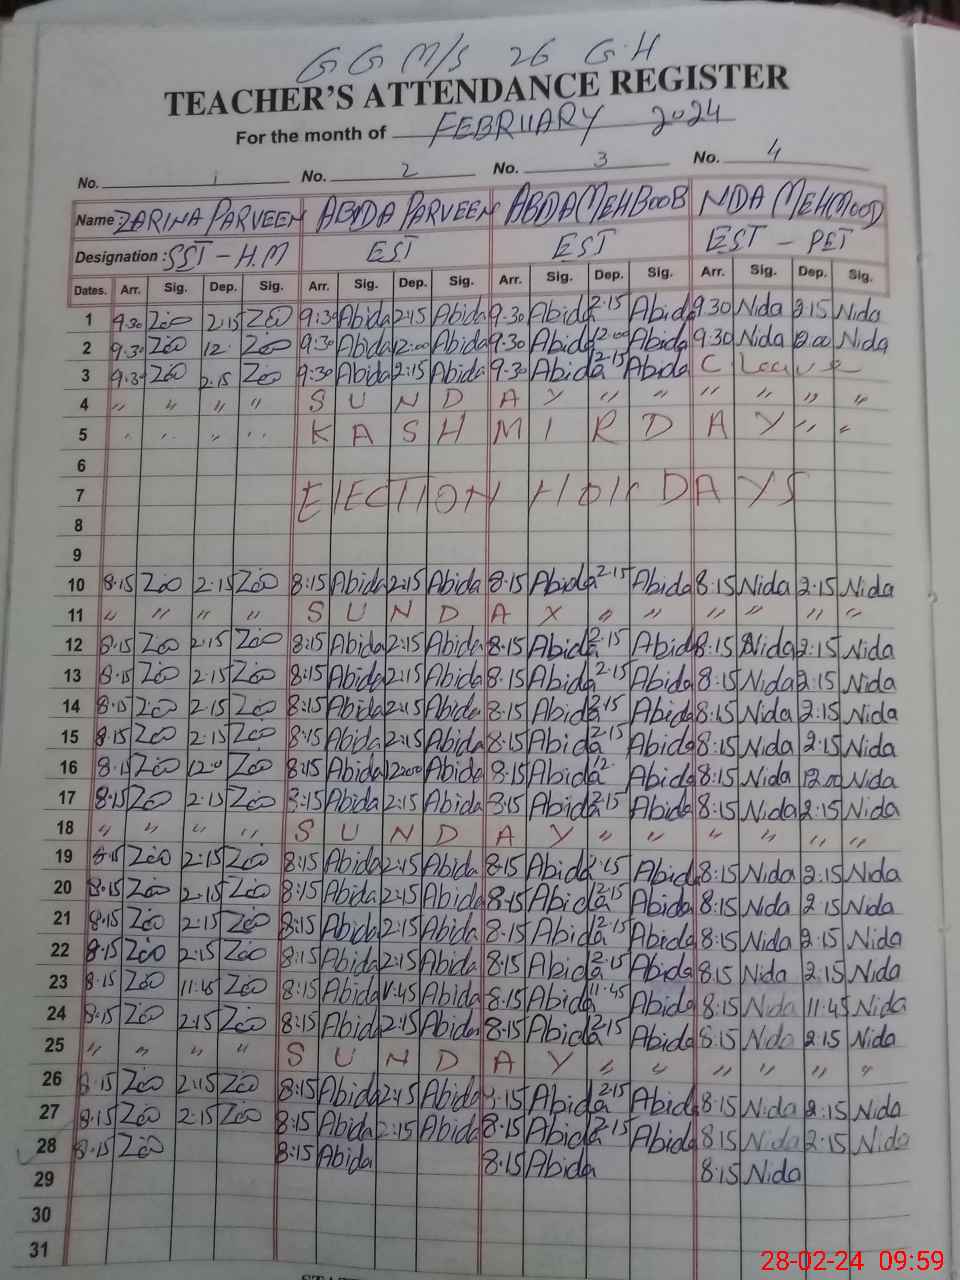 GGM/S 26 G.H
TEACHER'S ATTENDANCE REGISTER
For the month of FEBRUARY 2024
No. 1 No. 2 No. 3 No. 4
Name ZARINA PARVEEN ABIDA PARVEEN ABDA MEHBOOB NDA MEHMOOD
Designation : SST - H.M EST EST EST - PET
Dates. Arr. Sig. Dep. Sig. Arr. Sig. Dep. Sig. Arr. Sig. Dep. Sig. Arr. Sig. Dep. Sig.
1 9.30 Zoo 2:15 Zoo 9:30 Abida 2:15 Abida 9.30 Abida 2.15 Abida 9.30 Nida 2:15 Nida
2 9.30 Zoo 12. Zoo 9:30 Abida 12:00 Abida 9.30 Abida 12.00 Abida 9:30 Nida 12.00 Nida
3 9.30 Zoo 2.15 Zoo 9:30 Abida 2:15 Abida 9.30 Abida 2.15 Abida C Leave
4 " " " " S U N D A Y " " " " " "
5 " " " " K A S H M I R D A Y " "
6
7 ELECTION HOLIDAYS
8
9
10 8.15 Zoo 2.15 Zoo 8:15 Abida 2:15 Abida 8.15 Abida 2.15 Abida 8.15 Nida 2:15 Nida
11 " " " " S U N D A Y " " " " " "
12 8.15 Zoo 2.15 Zoo 8:15 Abida 2:15 Abida 8.15 Abida 2.15 Abida 8:15 Nida 2:15 Nida
13 8.15 Zoo 2.15 Zoo 8:15 Abida 2:15 Abida 8.15 Abida 2.15 Abida 8:15 Nida 2:15 Nida
14 8.15 Zoo 2.15 Zoo 8:15 Abida 2:15 Abida 8.15 Abida 2.15 Abida 8:15 Nida 2:15 Nida
15 8.15 Zoo 2.15 Zoo 8:15 Abida 2:15 Abida 8.15 Abida 2.15 Abida 8:15 Nida 2:15 Nida
16 8.15 Zoo 12.0 Zoo 8:15 Abida 12:00 Abida 8.15 Abida 12. Abida 8:15 Nida 12.00 Nida
17 8.15 Zoo 2.15 Zoo 8:15 Abida 2:15 Abida 8.15 Abida 2.15 Abida 8:15 Nida 2:15 Nida
18 " " " " S U N D A Y " " " " " "
19 8.15 Zoo 2:15 Zoo 8:15 Abida 2:15 Abida 8.15 Abida 2.15 Abida 8:15 Nida 2:15 Nida
20 8.15 Zoo 2.15 Zoo 8:15 Abida 2:15 Abida 8.15 Abida 2.15 Abida 8:15 Nida 2:15 Nida
21 8.15 Zoo 2:15 Zoo 8:15 Abida 2:15 Abida 8.15 Abida 2.15 Abida 8:15 Nida 2:15 Nida
22 8.15 Zoo 2:15 Zoo 8:15 Abida 2:15 Abida 8.15 Abida 2.15 Abida 8.15 Nida 2:15 Nida
23 8.15 Zoo 11:45 Zoo 8:15 Abida 11:45 Abida 8.15 Abida 11.45 Abida 8:15 Nida 11:45 Nida
24 8.15 Zoo 2:15 Zoo 8:15 Abida 2:15 Abida 8.15 Abida 2.15 Abida 8:15 Nida 2:15 Nida
25 " " " " S U N D A Y " " " " " "
26 8.15 Zoo 2:15 Zoo 8:15 Abida 2:15 Abida 8.15 Abida 2.15 Abida 8:15 Nida 2:15 Nida
27 8.15 Zoo 2:15 Zoo 8:15 Abida 2:15 Abida 8.15 Abida 2.15 Abida 8:15 Nida 2:15 Nida
28 8.15 Zoo 8:15 Abida 8.15 Abida 8:15 Nida
29
30
31
28-02-24 09:59